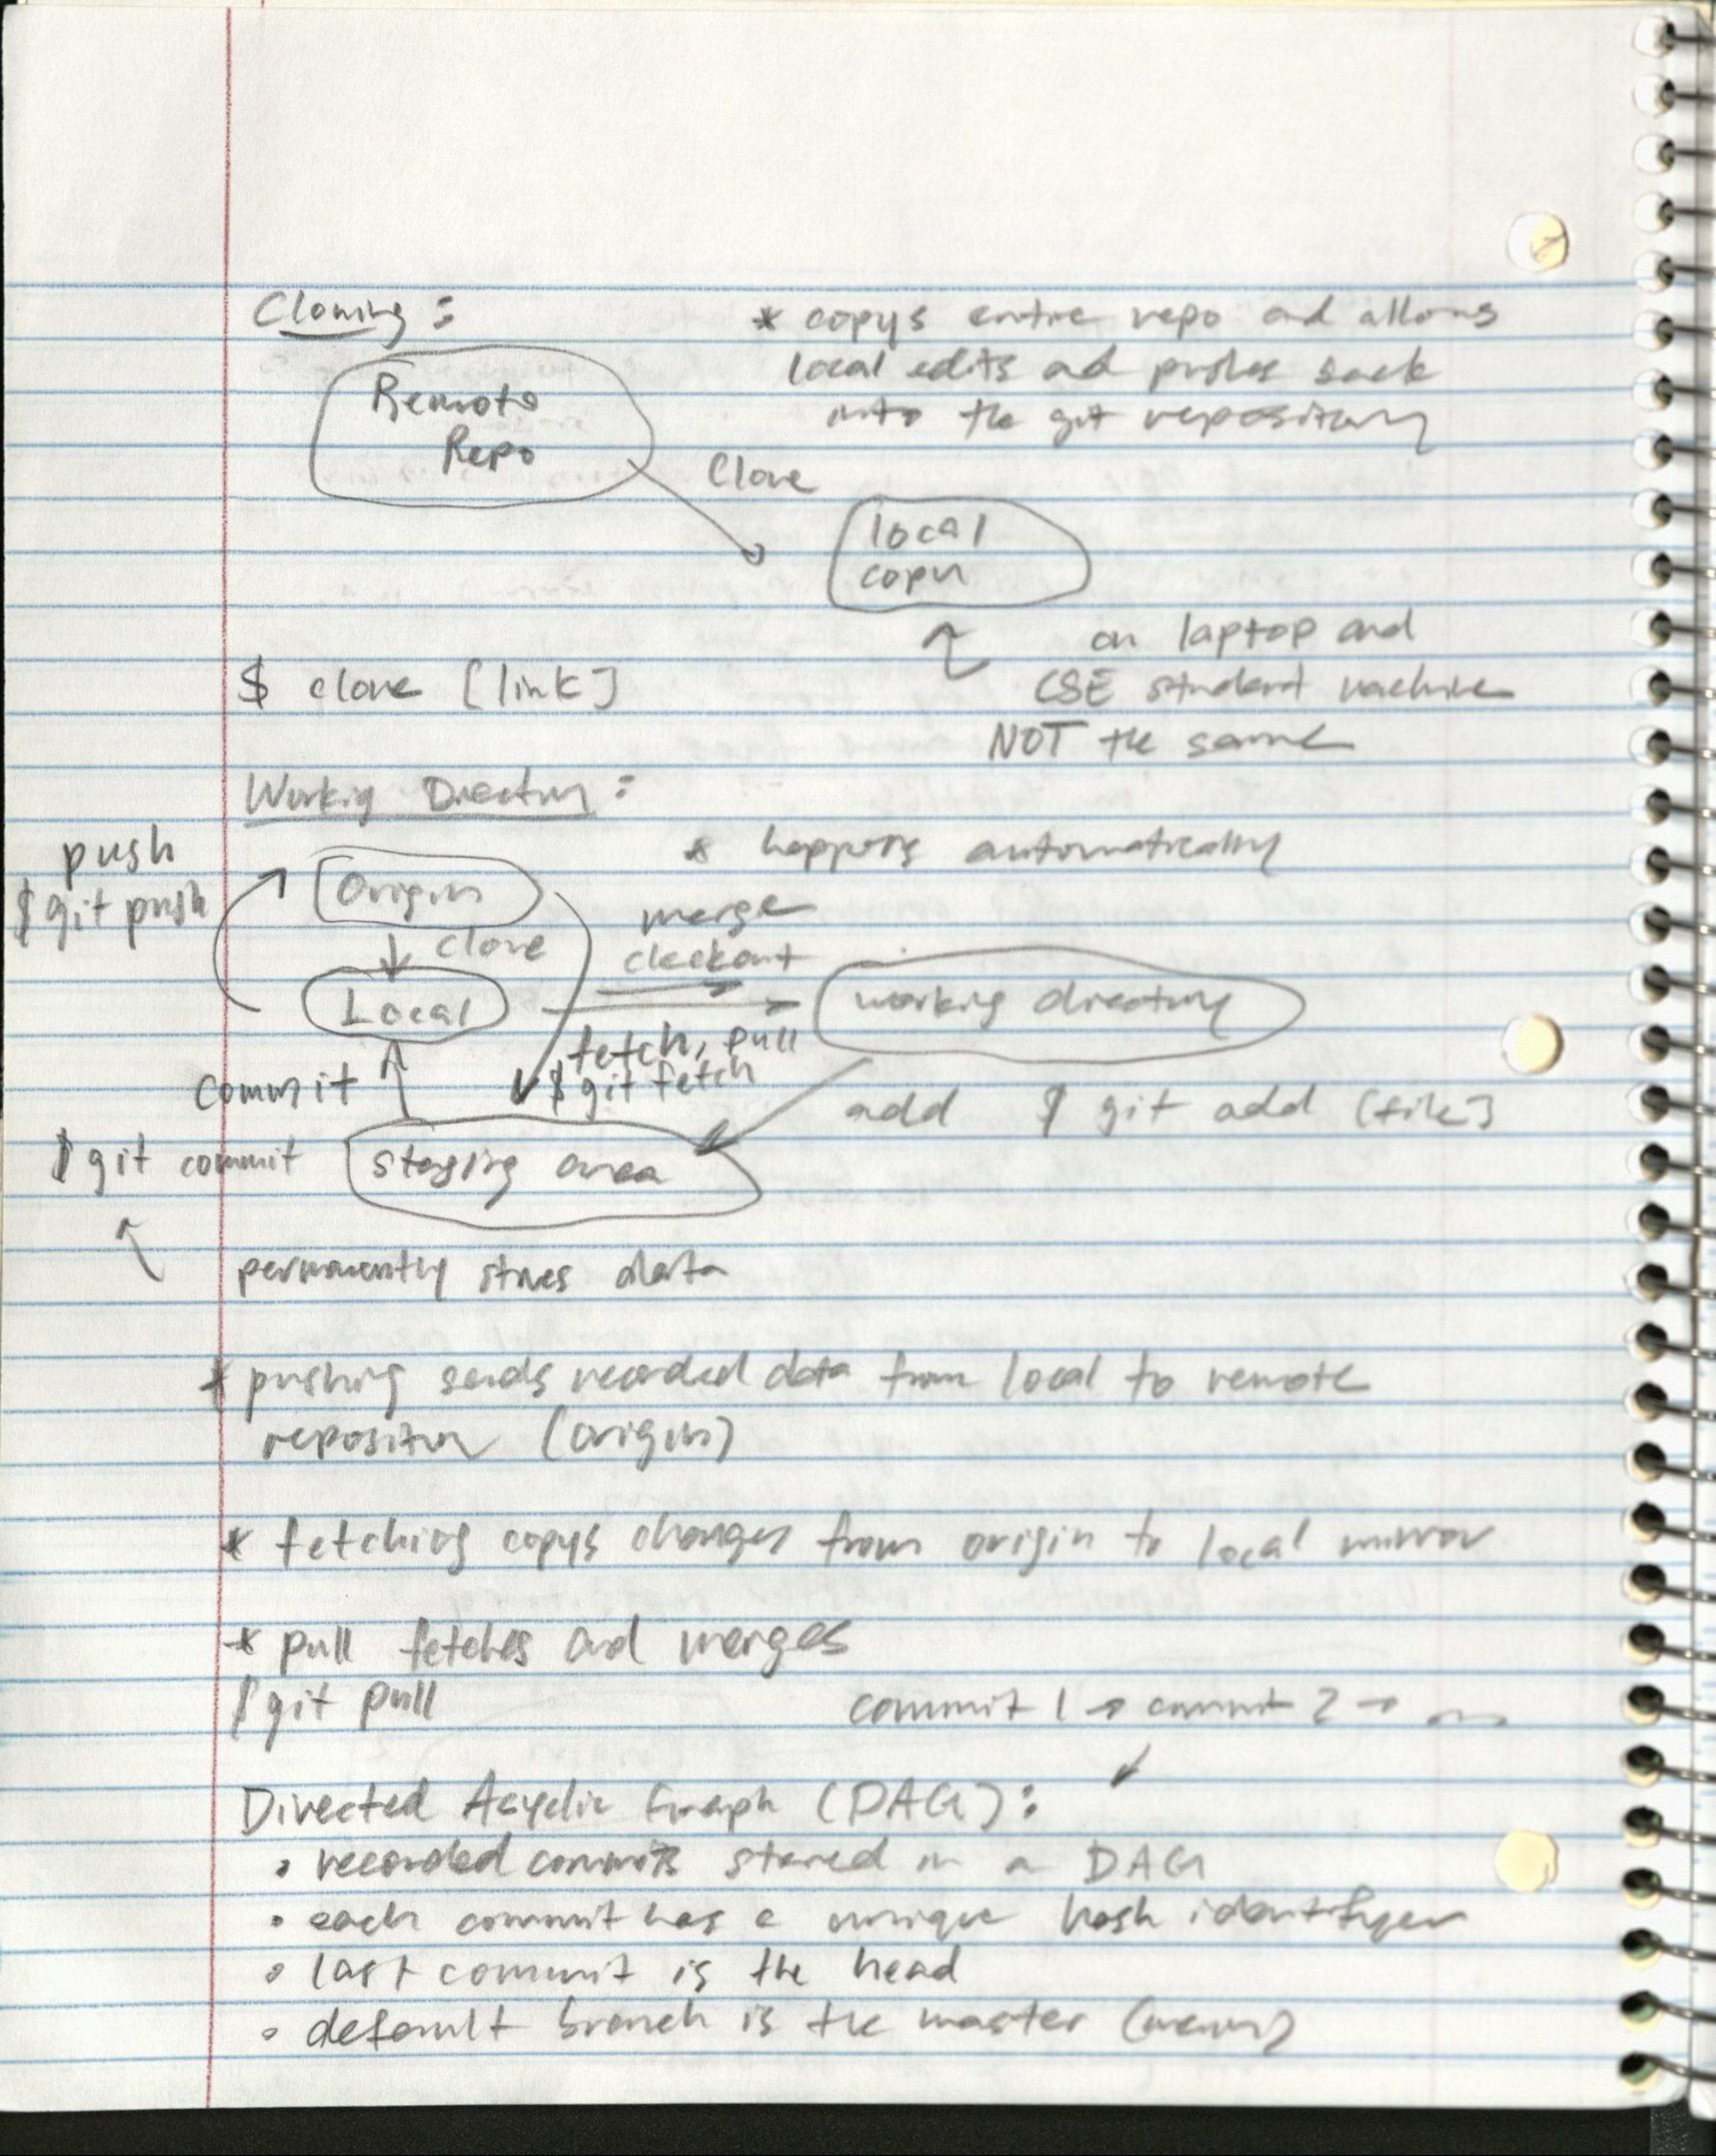 Cloning:
* copys entire repo and allows
local edits and pushes back
into the git repository
Remote
Repo
Clone
local
copy
on laptop and
CSE student machine
NOT the same
$ clone [link]
Working Directory:
* happens automatically
push
$ git push
Origin
clone
merge
checkout
Local
working directory
fetch, pull
$ git fetch
commit
add $ git add [file]
$ git commit
staging area
permanently stores data
* pushing sends recorded data from local to remote
repository (origin)
* fetching copys changes from origin to local mirror
* pull fetches and merges
$ git pull
commit 1 → commit 2 → ...
Directed Acyclic Graph (DAG):
• recorded commits stored in a DAG
• each commit has a unique hash identifyer
• last commit is the head
• default branch is the master (main)